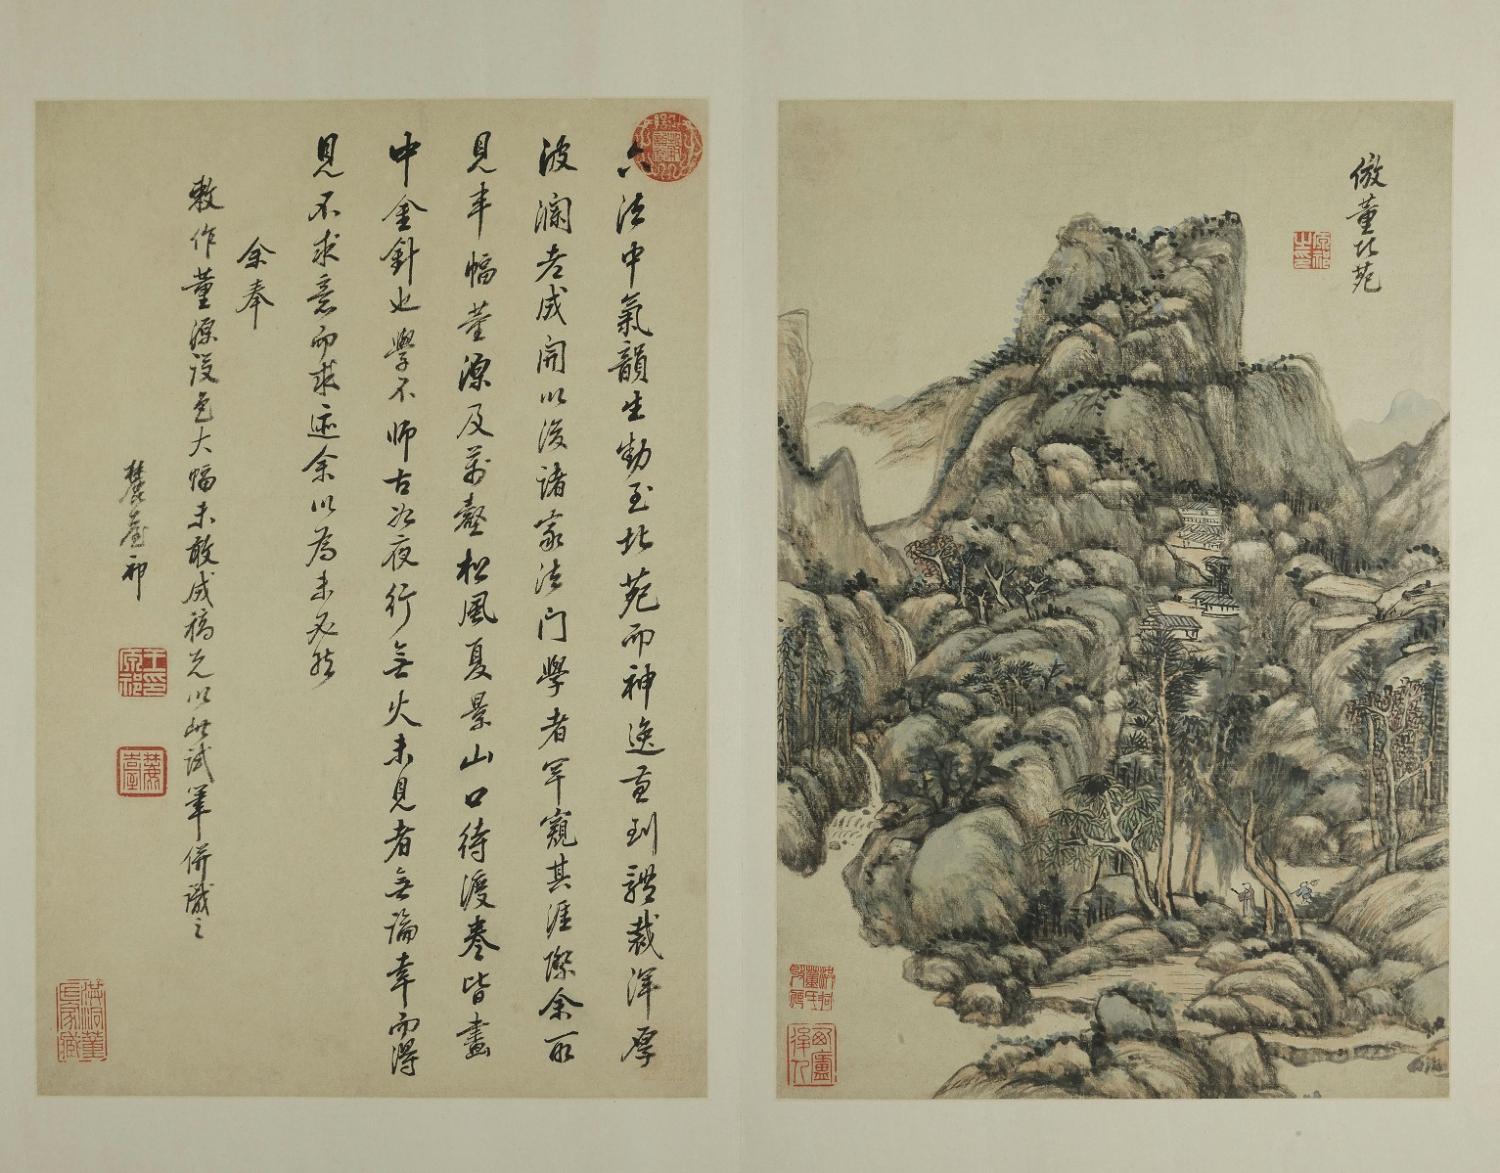 倣董北苑
六法中氣韻生動至北苑而神逸兼到體裁渾厚
波瀾老成開以後諸家法門學者罕窺其涯際余所
見半幅董源及萬壑松風夏景山口待渡卷皆畫
中金針也學不師古如夜行無火未見者無論幸而得
見不求意而求迹余以為未必然
余奉
敕作董源設色大幅未敢成稿先以此試筆併識之
麓臺祁
王原祁印
麓臺